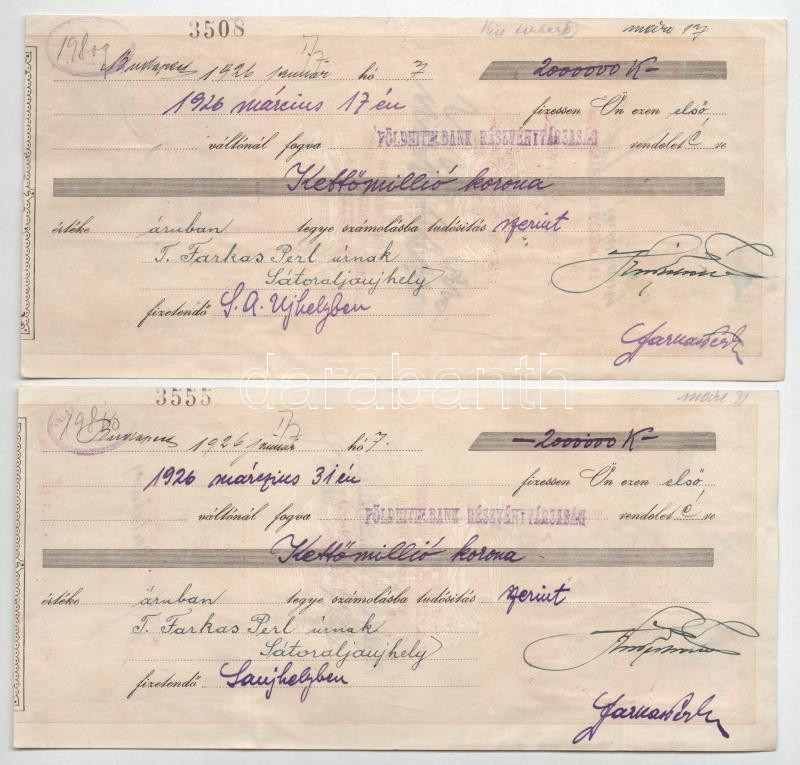 3508
márc 17
1980
Budapest 1926 január hó 7 2000000 K-
1926 március 17 én fizessen Ön ezen első
váltónál fogva FÖLDHITELBANK RÉSZVÉNYTÁRSASÁG rendelet é re
Kettőmillió korona
értéke áruban tegye számolásba tudósitás szerint
T. Farkas Perl úrnak
Sátoraljaujhely
fizetendő S. A. Ujhelyben
Farkas Perl
darabanth
3555
márc 31
Budapest 1926 január hó 7. -2000000 K-
1926 márczius 31 én fizessen Ön ezen első
váltónál fogva FÖLDHITELBANK RÉSZVÉNYTÁRSASÁG rendelet é re
Kettőmillió korona
értéke áruban tegye számolásba tudósitás szerint
T. Farkas Perl úrnak
Sátoraljaujhely
fizetendő Saujhelyben
Farkas Perl